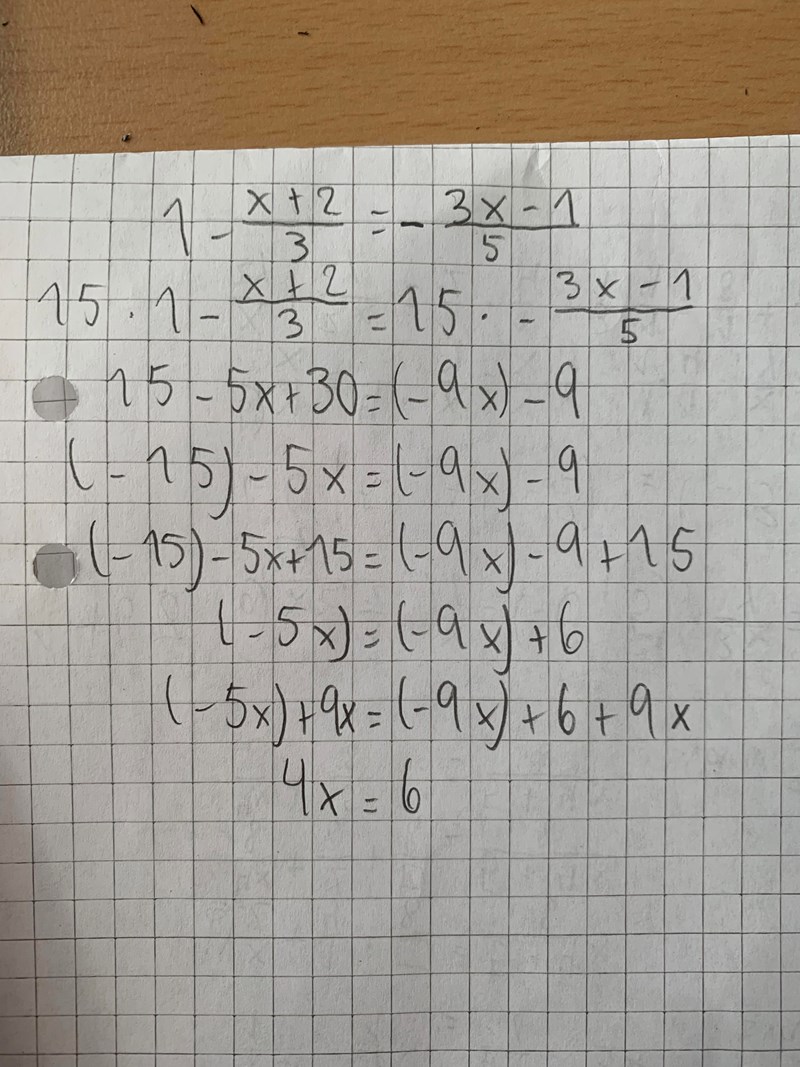 1 - (x + 2)/3 = - (3x - 1)/5
15 · 1 - (x + 2)/3 = 15 · - (3x - 1)/5
15 - 5x + 30 = (-9x) - 9
(-15) - 5x = (-9x) - 9
(-15) - 5x + 15 = (-9x) - 9 + 15
(-5x) = (-9x) + 6
(-5x) + 9x = (-9x) + 6 + 9x
4x = 6